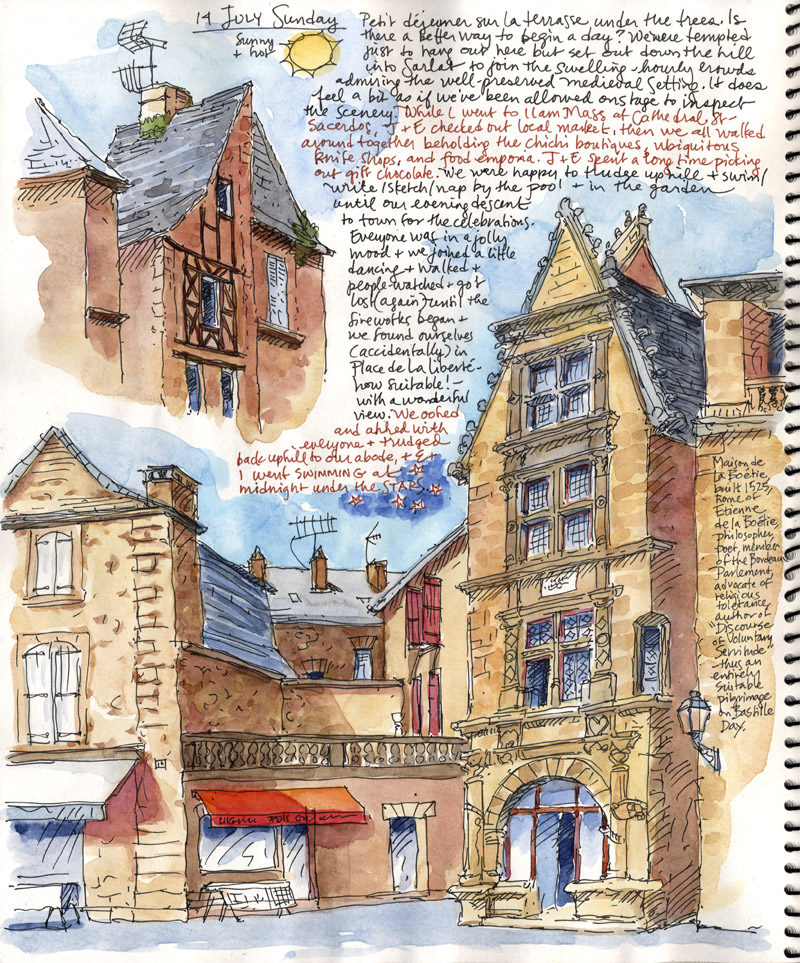 14 July Sunday
Sunny
+ hot
Petit déjeuner sur la terrasse, under the trees. Is
there a better way to begin a day? We were tempted
just to hang out here but set out down the hill
into Sarlat to join the swelling-hourly crowds
admiring the well-preserved medieval setting. It does
feel a bit as if we've been allowed onstage to inspect
the scenery. While L went to 11am Mass at Cathedral St-
Sacerdos, J + E checked out local market, then we all walked
around together beholding the chichi boutiques, ubiquitous
knife shops, and food emporia. J + E spent a long time picking
out gift chocolate. We were happy to trudge uphill + swim/
write/sketch/nap by the pool + in the garden
until our evening descent
to town for the celebrations.
Everyone was in a jolly
mood + we joined a little
dancing + walked +
people-watched + got
lost (again) until the
fireworks began +
we found ourselves
(accidentally) in
Place de la Liberté -
how suitable! -
with a wonderful
view. We oohed
and ahhed with
everyone + trudged
back uphill to our abode, + E +
I went SWIMMING at
midnight under the STARS.
Maison de
La Boétie,
built 1525,
home of
Etienne
de la Boétie,
philosopher,
poet, member
of the Bordeaux
Parlement,
advocate of
religious
tolerance,
author of
"Discourse
of Voluntary
Servitude"
- thus an
entirely
suitable
pilgrimage
on Bastille
Day.